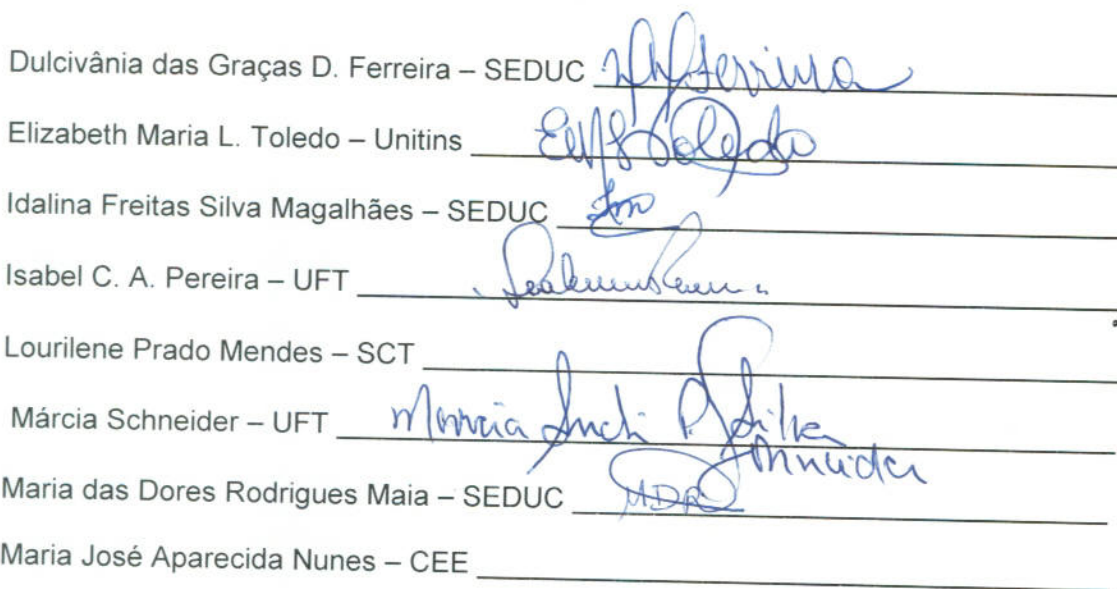 Dulcivânia das Graças D. Ferreira – SEDUC
Elizabeth Maria L. Toledo – Unitins Toledo
Idalina Freitas Silva Magalhães – SEDUC
Isabel C. A. Pereira – UFT
Lourilene Prado Mendes – SCT
Márcia Schneider – UFT
Maria das Dores Rodrigues Maia – SEDUC
Maria José Aparecida Nunes – CEE